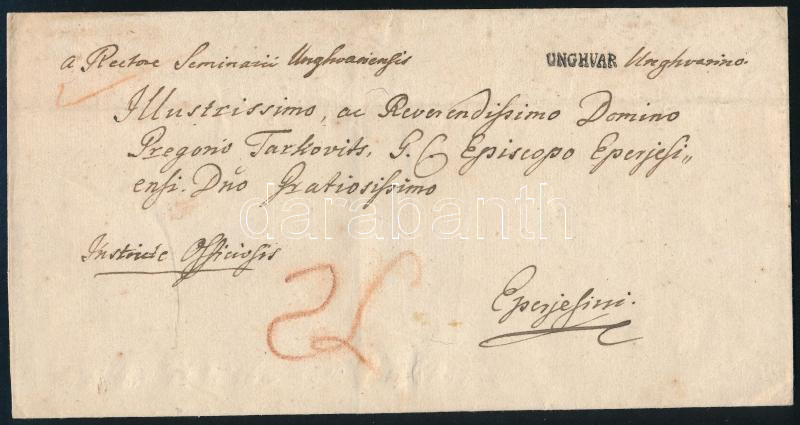 a Rectore Seminarii Unghvariensis UNGHVAR Unghvarino.
Illustrissimo, ac Reverendissimo Domino
Gregorio Tarkovits, G. C. Episcopo Eperjesi„
ensi. Dño Gratiosissimo
darabanth
Officiosis
Eperjesini.